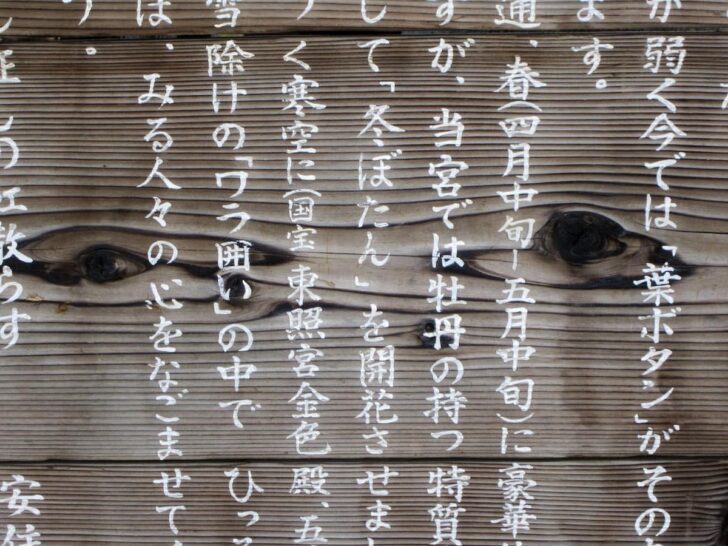 が弱く今では「葉ボタン」がその
ます。
通、春(四月中旬ー五月中旬)に豪華
すが、当宮では牡丹の持つ特質
して「冬ぼたん」を開花させま
く寒空に(国宝東照宮金色殿、五
雪除けの「ワラ囲い」の中でひっ
は、みる人々の心をなごませて
う。
の紅散らす 安住